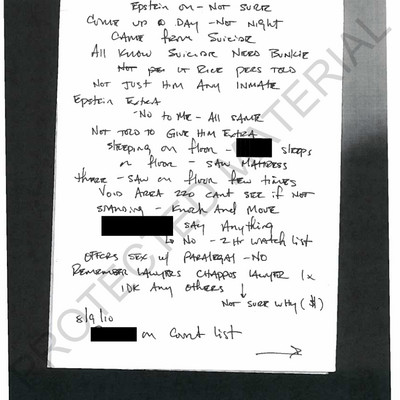 Epstein on - Not sure
Come up @ Day - Not Night
Came from Suicide
All know Suicide Need Bunkie
Not Lt Rice pers told
Not just him any inmate
Epstein Extra
- No to me - All same
Not told to give him Extra
sleeping on floor - sleeps
on floor - saw mattress
there - saw on floor few times
Void Area 220 cant see if not
standing - knock and move
say anything
→ No - 2 Hr watch list
offers sex w/ paralegal - NO
Remember lawyers Chappos lawyer 1x
IDK any others
Not sure why ($)
8/9/10
on count list
PROTECTED MATERIAL